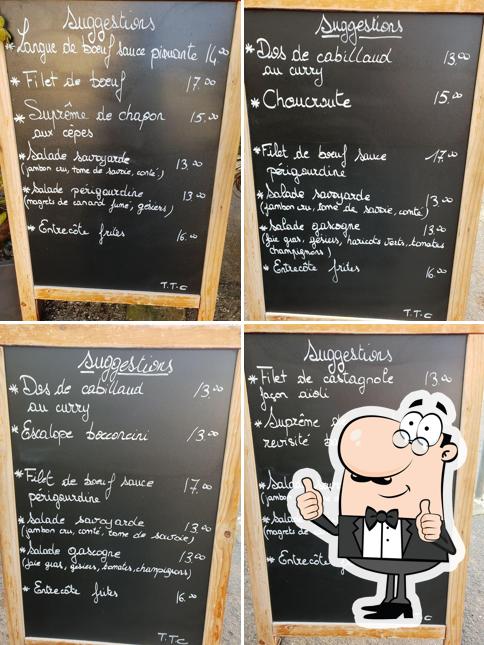 Suggestions
* Langue de bœuf sauce piquante 14.00
* Filet de bœuf 17.00
* Suprême de chapon 15.00
aux cèpes
* Salade savoyarde 13.00
(jambon cru, tome de savoie, conté)
* Salade périgourdine 13.00
(magrets de canard fumé, gésiers)
* Entrecôte frites 16.00
T.T.C
Suggestions
* Dos de cabillaud 13.00
au curry
* Choucroute 15.00
* Filet de bœuf sauce 17.00
périgourdine
* Salade savoyarde 13.00
(jambon cru, tome de savoie, conté)
* Salade gascogne 13.00
(foie gras, gésiers, haricots verts, tomates
champignons)
* Entrecôte frites 16.00
T.T.C
Suggestions
* Dos de cabillaud 13.00
au curry
* Escalope bocconcini 13.00
* Filet de bœuf sauce 17.00
périgourdine
* Salade savoyarde 13.00
(jambon cru, conté, tome de savoie)
* Salade gascogne 13.00
(foie gras, gésiers, tomates, champignons)
* Entrecôte frites 16.00
T.T.C
Suggestions
* Filet de castagnole 13.00
façon aioli
* Suprême
revisité
* Entrecôte
T.T.C